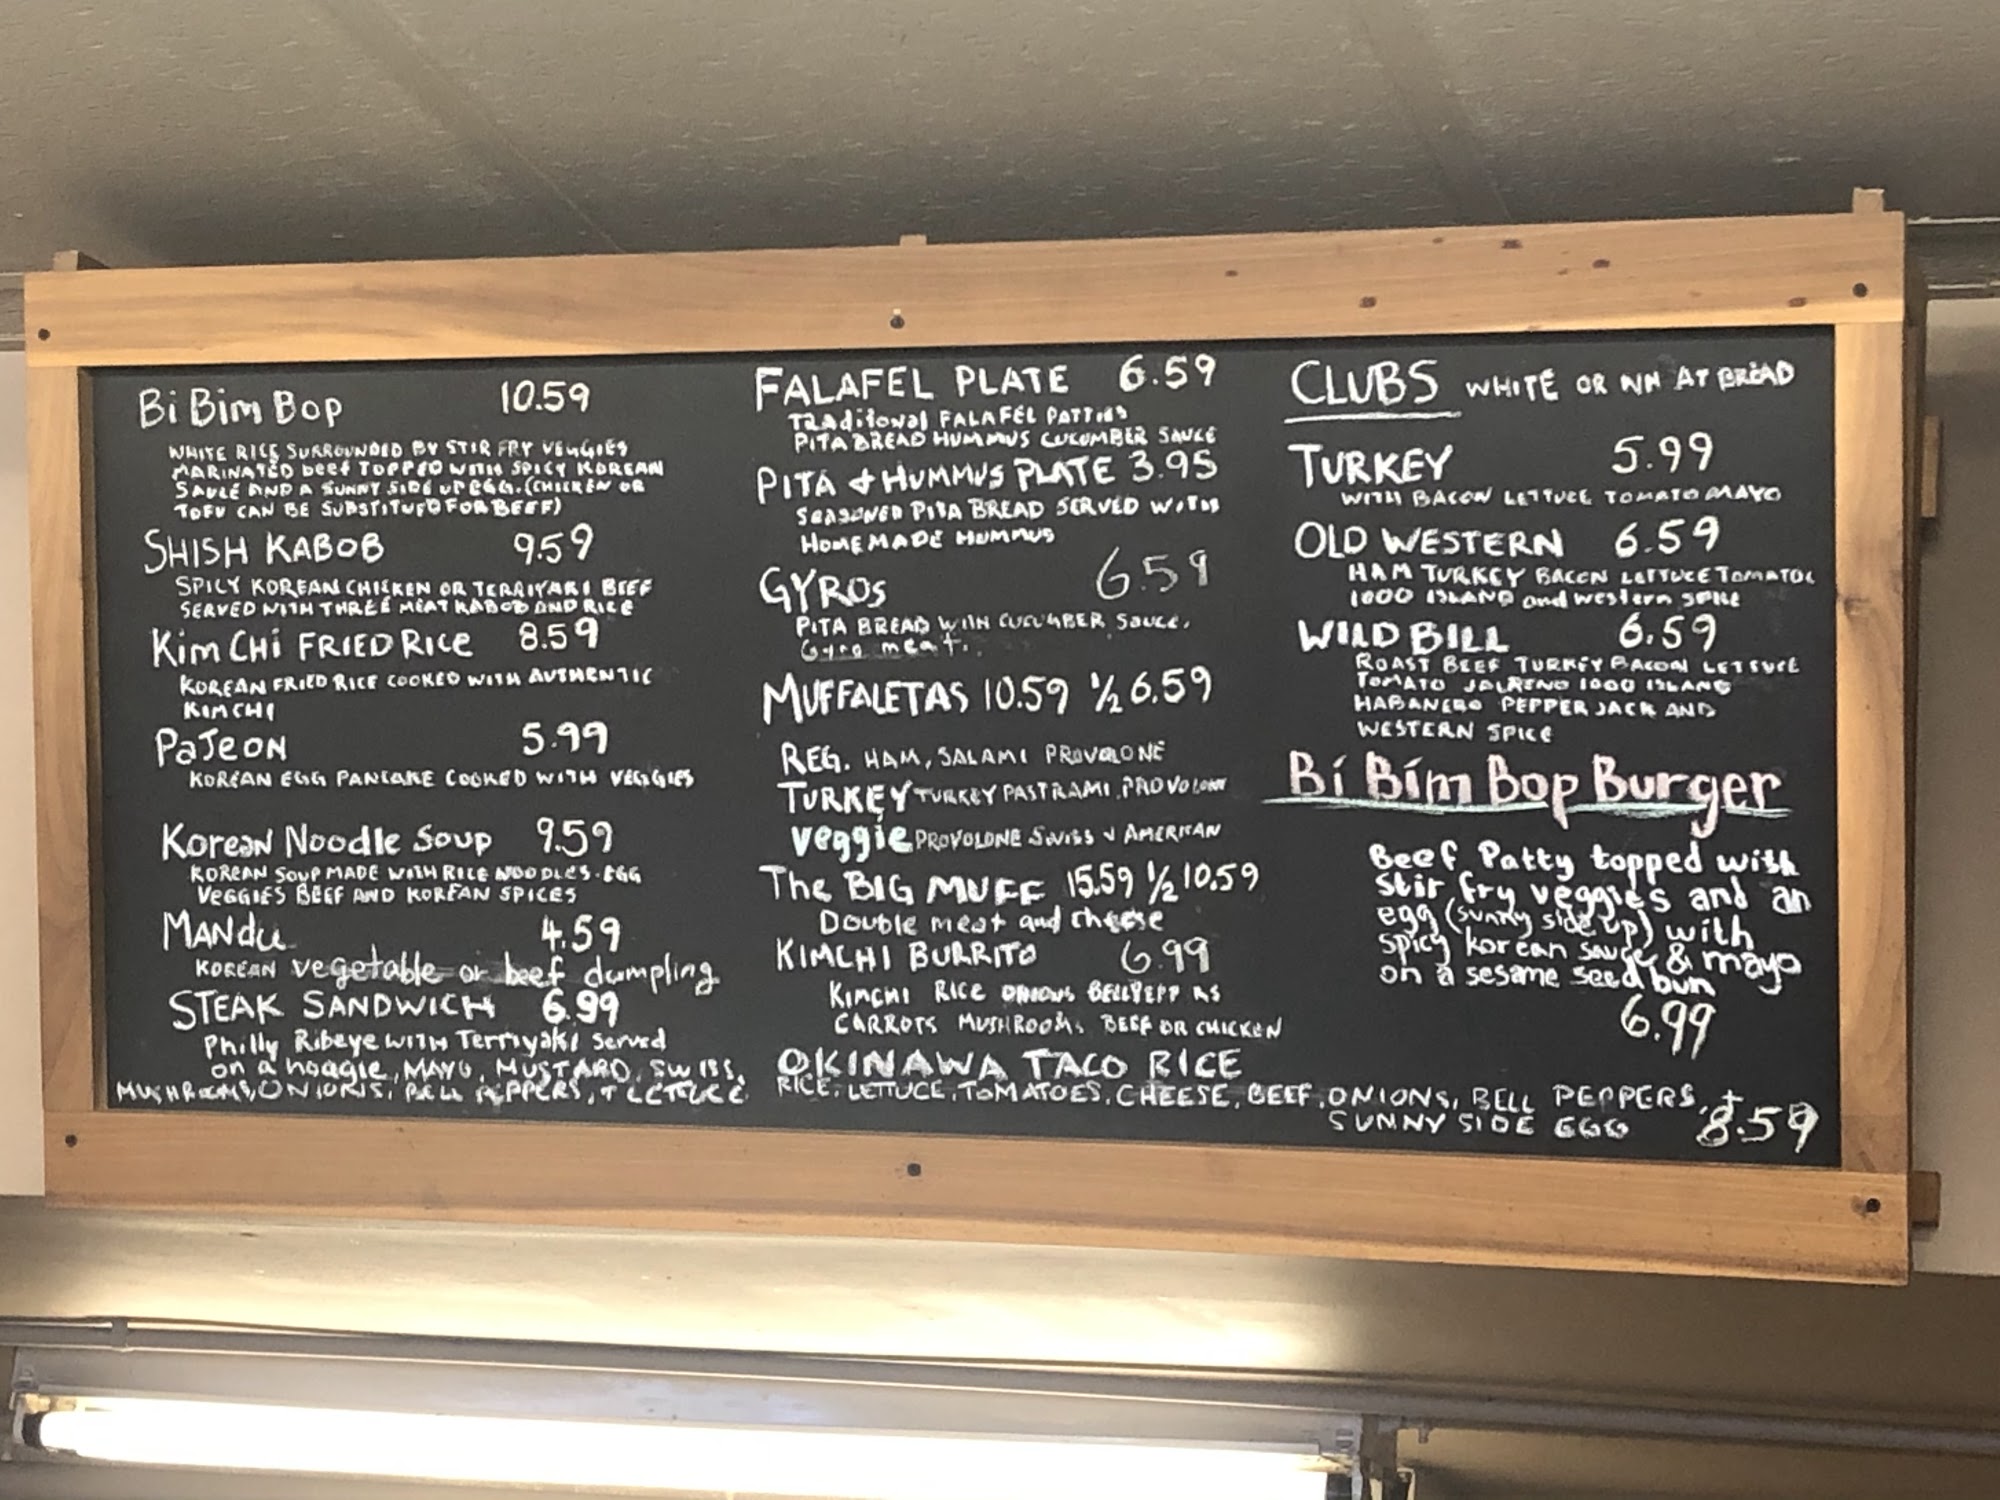 Bi Bim Bop 10.59
WHITE RICE SURROUNDED BY STIR FRY VEGGIES
MARINATED beef TOPPED WITH SPICY KOREAN
SAUCE AND A SUNNY SIDE UP EGG. (CHICKEN OR
TOFU CAN BE SUBSTITUED FOR BEEF)
SHISH KABOB 9.59
SPICY KOREAN CHICKEN OR TERRIYAKI BEEF
SERVED WITH THREE MEAT KABOB AND RICE
Kim CHi FRIED RICE 8.59
KOREAN FRIED RICE COOKED WITH AUTHENTIC
KIMCHI
PaJeon 5.99
KOREAN EGG PANCAKE COOKED WITH VEGGIES
Korean Noodle Soup 9.59
KOREAN SOUP MADE WITH RICE NOODLES. EGG
VEGGIES BEEF AND KOREAN SPICES
MANdu 4.59
KOREAN vegetable or beef dumpling
STEAK SANDWICH 6.99
Philly Ribeye WITH Terriyaki Served
on a hoagie, MAYO, MUSTARD, SWISS,
MUSHROOMS, ONIONS, BELL PEPPERS, + LETTUCE
FALAFEL PLATE 6.59
TRADitionAl FALAFEL PATTIES
PITA BREAD HUMMUS CUCUMBER SAUCE
PITA & HUMMUS PLATE 3.95
SEASONED PITA BREAD SERVED WITH
HOMEMADE HUMMUS
GYROS 6.59
PITA BREAD WITH CUCUMBER SAUCE.
Gyro meat.
MUFFALETAS 10.59 ½ 6.59
REG. HAM, SALAMI PROVOLONE
TURKEY TURKEY PASTRAMI, PROVOLONE
veggie PROVOLONE SWISS & AMERICAN
The BIG MUFF 15.59 ½ 10.59
Double meat and cheese
KIMCHI BURRITO 6.99
KIMCHI RICE ONIONS BELLPEPPERS
CARROTS MUSHROOMS BEEF OR CHICKEN
OKINAWA TACO RICE
RICE, LETTUCE, TOMATOES, CHEESE, BEEF, ONIONS, BELL PEPPERS, +
SUNNY SIDE EGG 8.59
CLUBS WHITE OR BREAD
TURKEY 5.99
WITH BACON LETTUCE TOMATO MAYO
OLD WESTERN 6.59
HAM TURKEY BACON LETTUCE TOMATOE
1000 ISLAND and western SPICE
WILD BILL 6.59
ROAST BEEF TURKEY BACON LETTUCE
TOMATO JALPENO 1000 ISLAND
HABANERO PEPPER JACK AND
WESTERN SPICE
Bi Bim Bop Burger
Beef Patty topped with
stir fry veggies and an
egg (sunny side up) with
spicy korean sauce & mayo
on a sesame seed bun
6.99